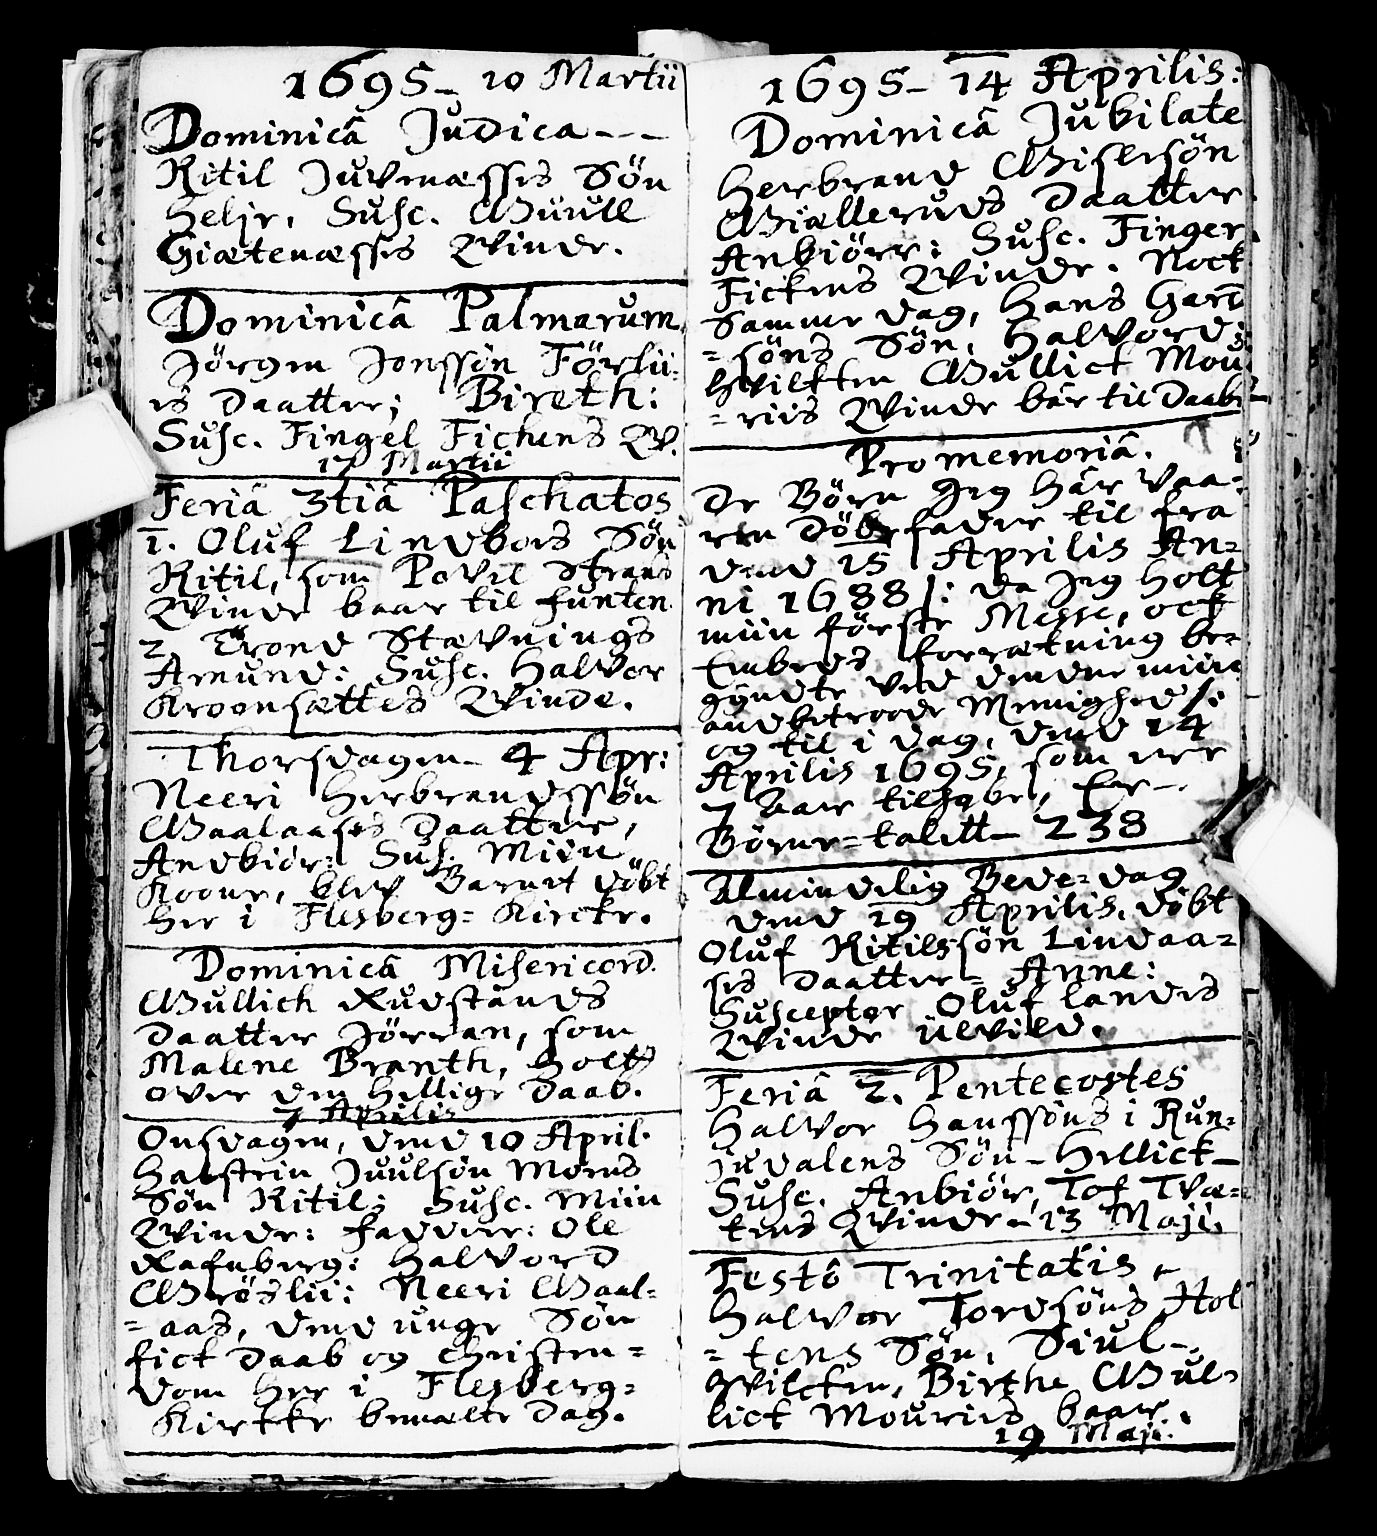 1695 - 10 Martii
Dominicâ Judica - - -
Kitil Juvenæsses Sön
Helje, Susc. Gunill
Giætenæsses Qvinde.
Dominicâ Palmarum
Jörgen Jonssön Förlii=
es Daatter; Bireth:
Susc. Fingel Fickens Qv.
17 Martii
Feriâ 3tiâ Paschatos
1. Oluf Lindboes Sön
Kitil, som Povil Strands
Qvinde baar til funten.
2. Trond Stævnings
Amund: Susc. Halvor
Kroonsættes Qvinde.
Thorsdagen - 4 Apr:
Neeri Herbrandssön
Gaalaases Daatter,
Andbiör: Sus. Miin
Koone, blef Barnet döbt
her i Flesberg= Kircke.
Dominicâ Misericord.
Gullich Rudstands
Daatter Jörran, som
Malene Branth, holt
over den hellige Daab.
7 Aprilis
Onsdagen, dend 10 April.
Halstein Juulsön Moens
Sön Kitil; Susc. Miin
Qvinde: Faddere: Ole
Rafnberg: Halvord
Gröslii: Neeri Gaal-
=aas, dend unge Sön
fick Daab og Christen=
dom her i Flesberg=
Kircke bemælte dag.
1695 - 14 Aprilis:
Dominicâ Jubilate
Herbrand Gislesön
Giælleruds Daatter
Anbiörr: Susc. Finger
Fickens Qvinde. Nock
Samme dag, Hans Gart
=söns Sön, Halvord:
Hvilcken Gullick Mou
=riis Qvinde bar til Daab
Pro memoriâ.
De Börn Jeg här vaa=
ren Döbefader til fra
dend 15 Aprilis An=
ni 1688 /: da Jeg holt
miin förste Messe, ock
Embeds forrætning be=
gyndte ved denne miin
anbetroode Meenighed /:
og til i dag, dend 14
Aprilis 1695, som ere
7 Aar tilgobe, Er -
Börne=talett - 238
Almindelig Bede=dag
dend 19 Aprilis. döbt
Oluf Kitilssön Lindaa=
ses Daatter= Anne:
Susceptor Oluf Landes
Qvinde Ülvild.
Feriâ 2. Pentecostes
Halvor Hanssöns i Run=
judalens Sön - Hellick -
Susc. Anbiör, Tof Tvæ=
tens Qvinde - 13 Maji.
Festô Trinitatis
Halvor Tordsöns Hol
=tens Sön, Siul -,
Hvilcken, Birthe Gul=
lick Mouriis baar.
19 Maji.